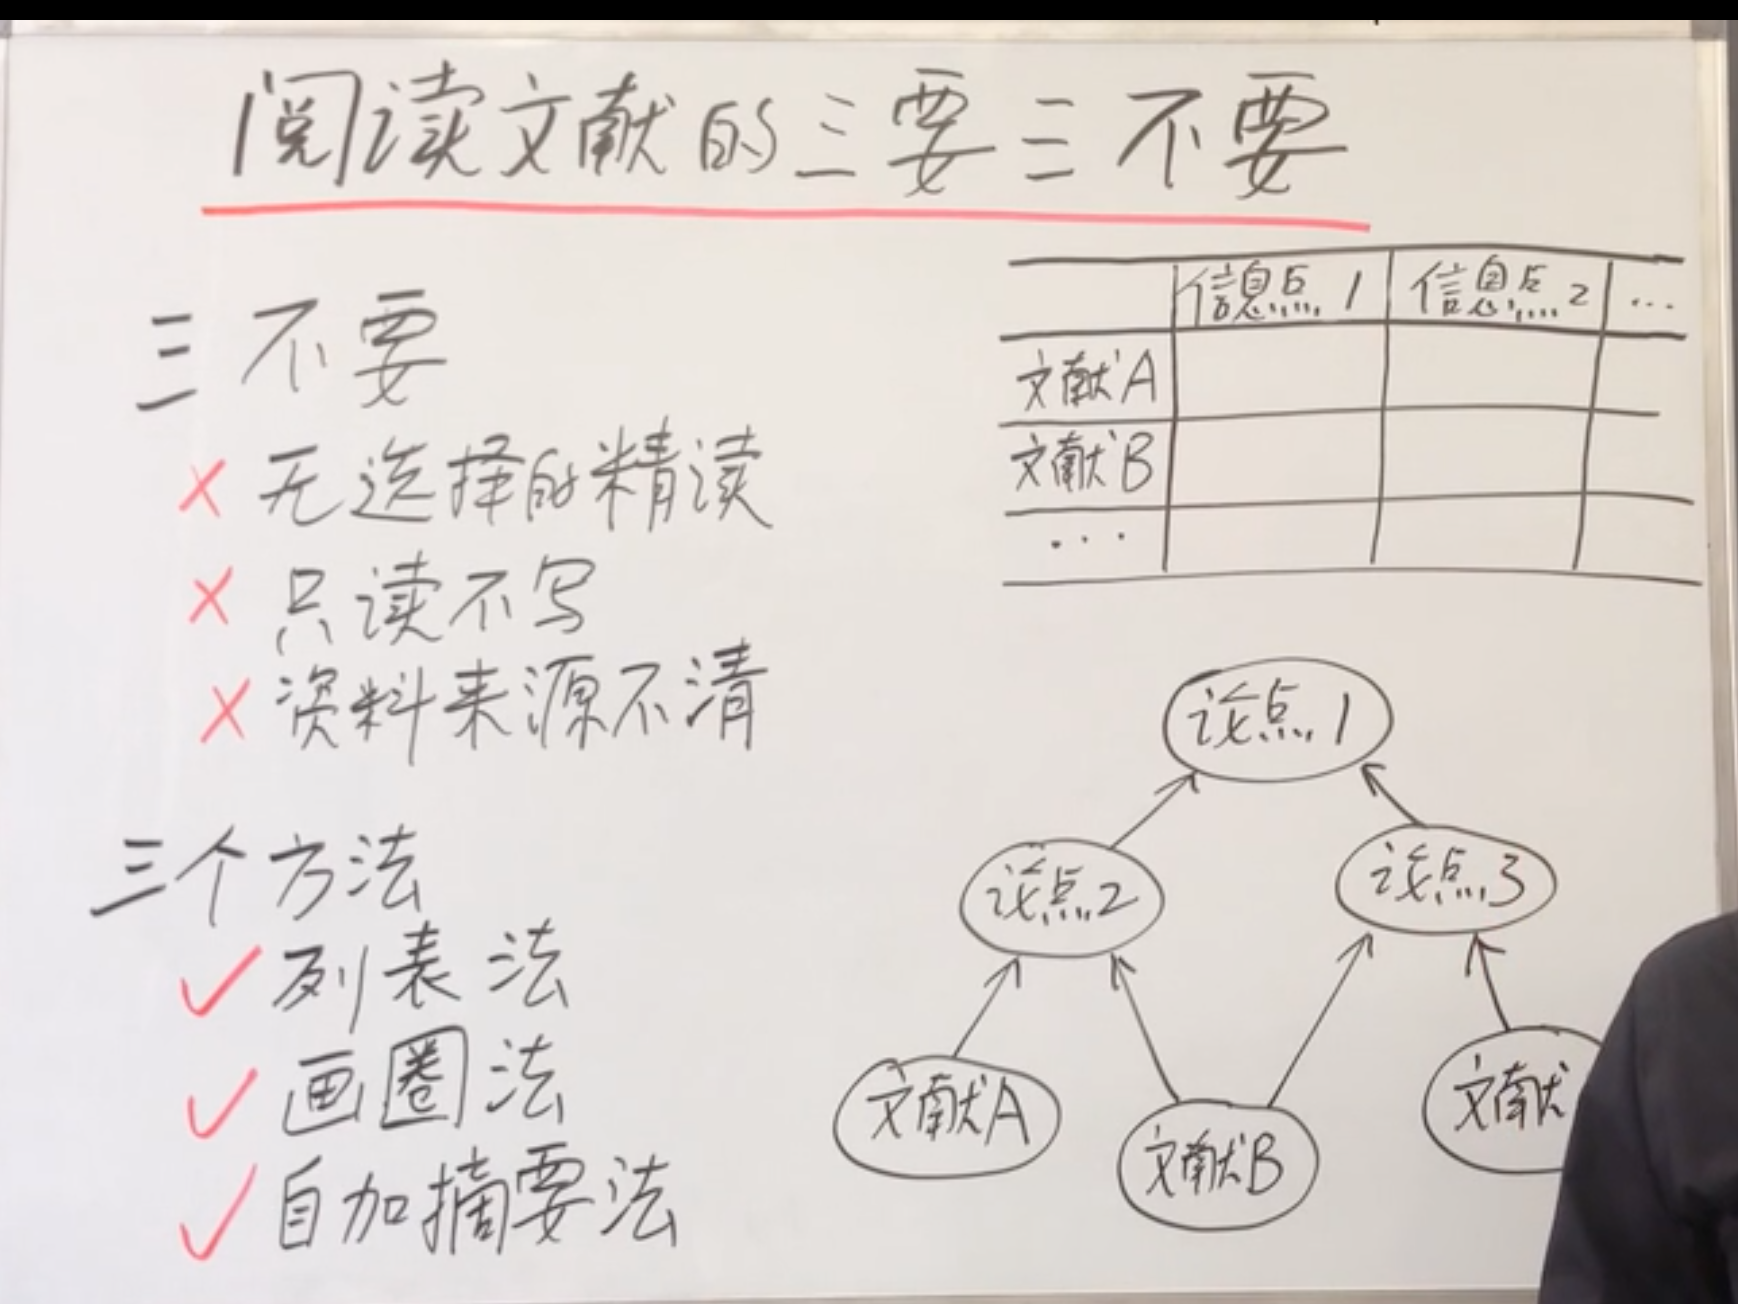 阅读文献的三要三不要
三不要
× 无选择的精读
× 只读不写
× 资料来源不清
三个方法
✓ 列表法
✓ 画圈法
✓ 自加摘要法
信息点1 信息点2 ...
文献A
文献B
...
议点1
议点2 议点3
文献A 文献B 文献